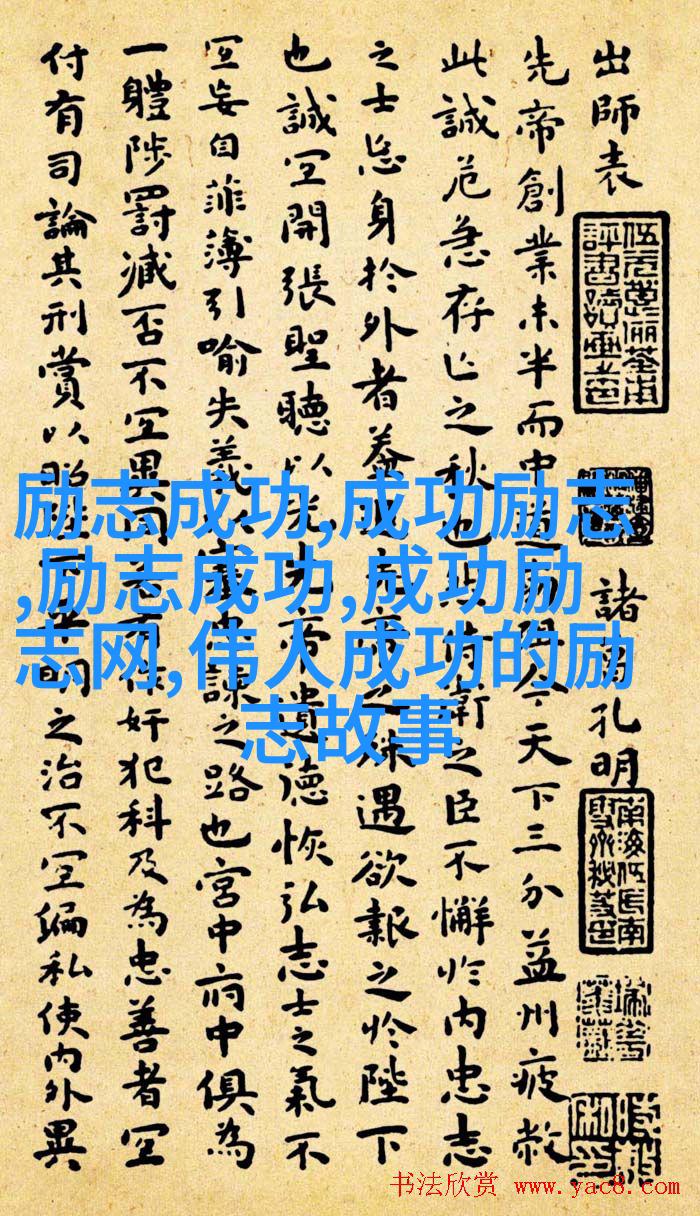 出師表
諸葛孔明
先帝創業未半而中道崩殂今天下三分益州疲敝
此誠危急存亡之秋也然侍衛之臣不懈於内忠志
之士忘身於外者蓋追先帝之殊遇欲報之於陛下
也誠宜開張聖聽以光先帝遺德恢弘志士之氣不
宜妄自菲薄引喻失義以塞忠諫之路也宮中府中俱為
一體陟罰臧否不宜異同若有作奸犯科及為忠善者宜
付有司論其刑賞以昭陛下平明之治不宜偏私使内外異
励志成功,成功励志
,励志成功,成功励
志网,伟人成功的励
志故事
书法欣赏 www.yac8.com